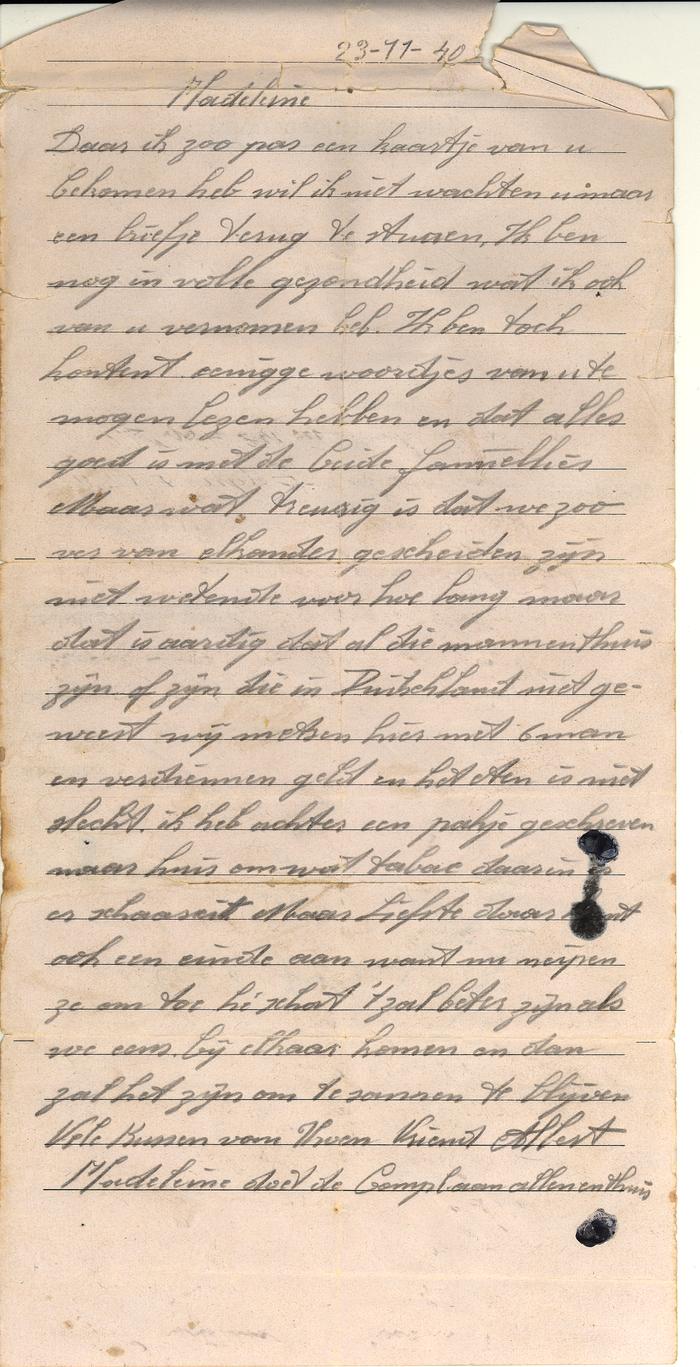 23-11-40
Madeleine
Daar ik zoo pas een kaartje van u
bekomen heb wil ik niet wachten u maar
een briefje terug te stuuren, Ik ben
nog in volle gezondheid wat ik ook
van u vernomen heb. Ik ben toch
kontent eenigge woordjes van u te
mogen lezen hebben en dat alles
goed is met de beide famiellies
Maar wat treuzig is dat we zoo
ver van elkander gescheiden zijn
niet wetende voor hoe lang maar
dat is aardig dat al die mannen thuis
zijn of zijn die in Duitschland niet ge-
weest wij metsen hier met 6 man
en verdiennen geld en het eten is niet
slecht. ik heb achter een pakje geschreven
naar huis om wat tabac daarin is
er schaarseit Maar Liefste daar
ook een einde aan want nu neipen
ze om toe hé schat 't zal beter zijn als
we eens bij elkaar komen en dan
zal het zijn om te samen te blijven
Vele Kussen van Uwen Vriend Albert
Madeleine doet de Compl. aan allen en thuis